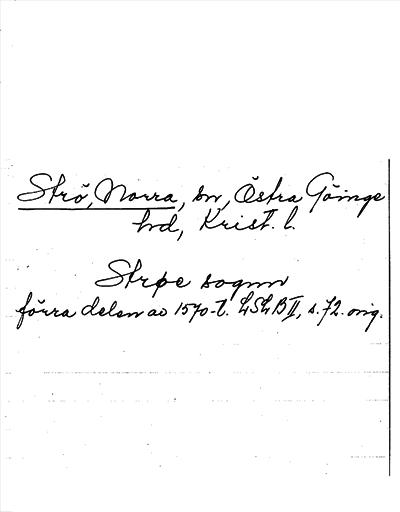 Strö, Norra, sn, Östra Göinge
hd, Krist. l.
Strøe sognn
förra delen av 1570-t. LSLB II, s. 72. orig.